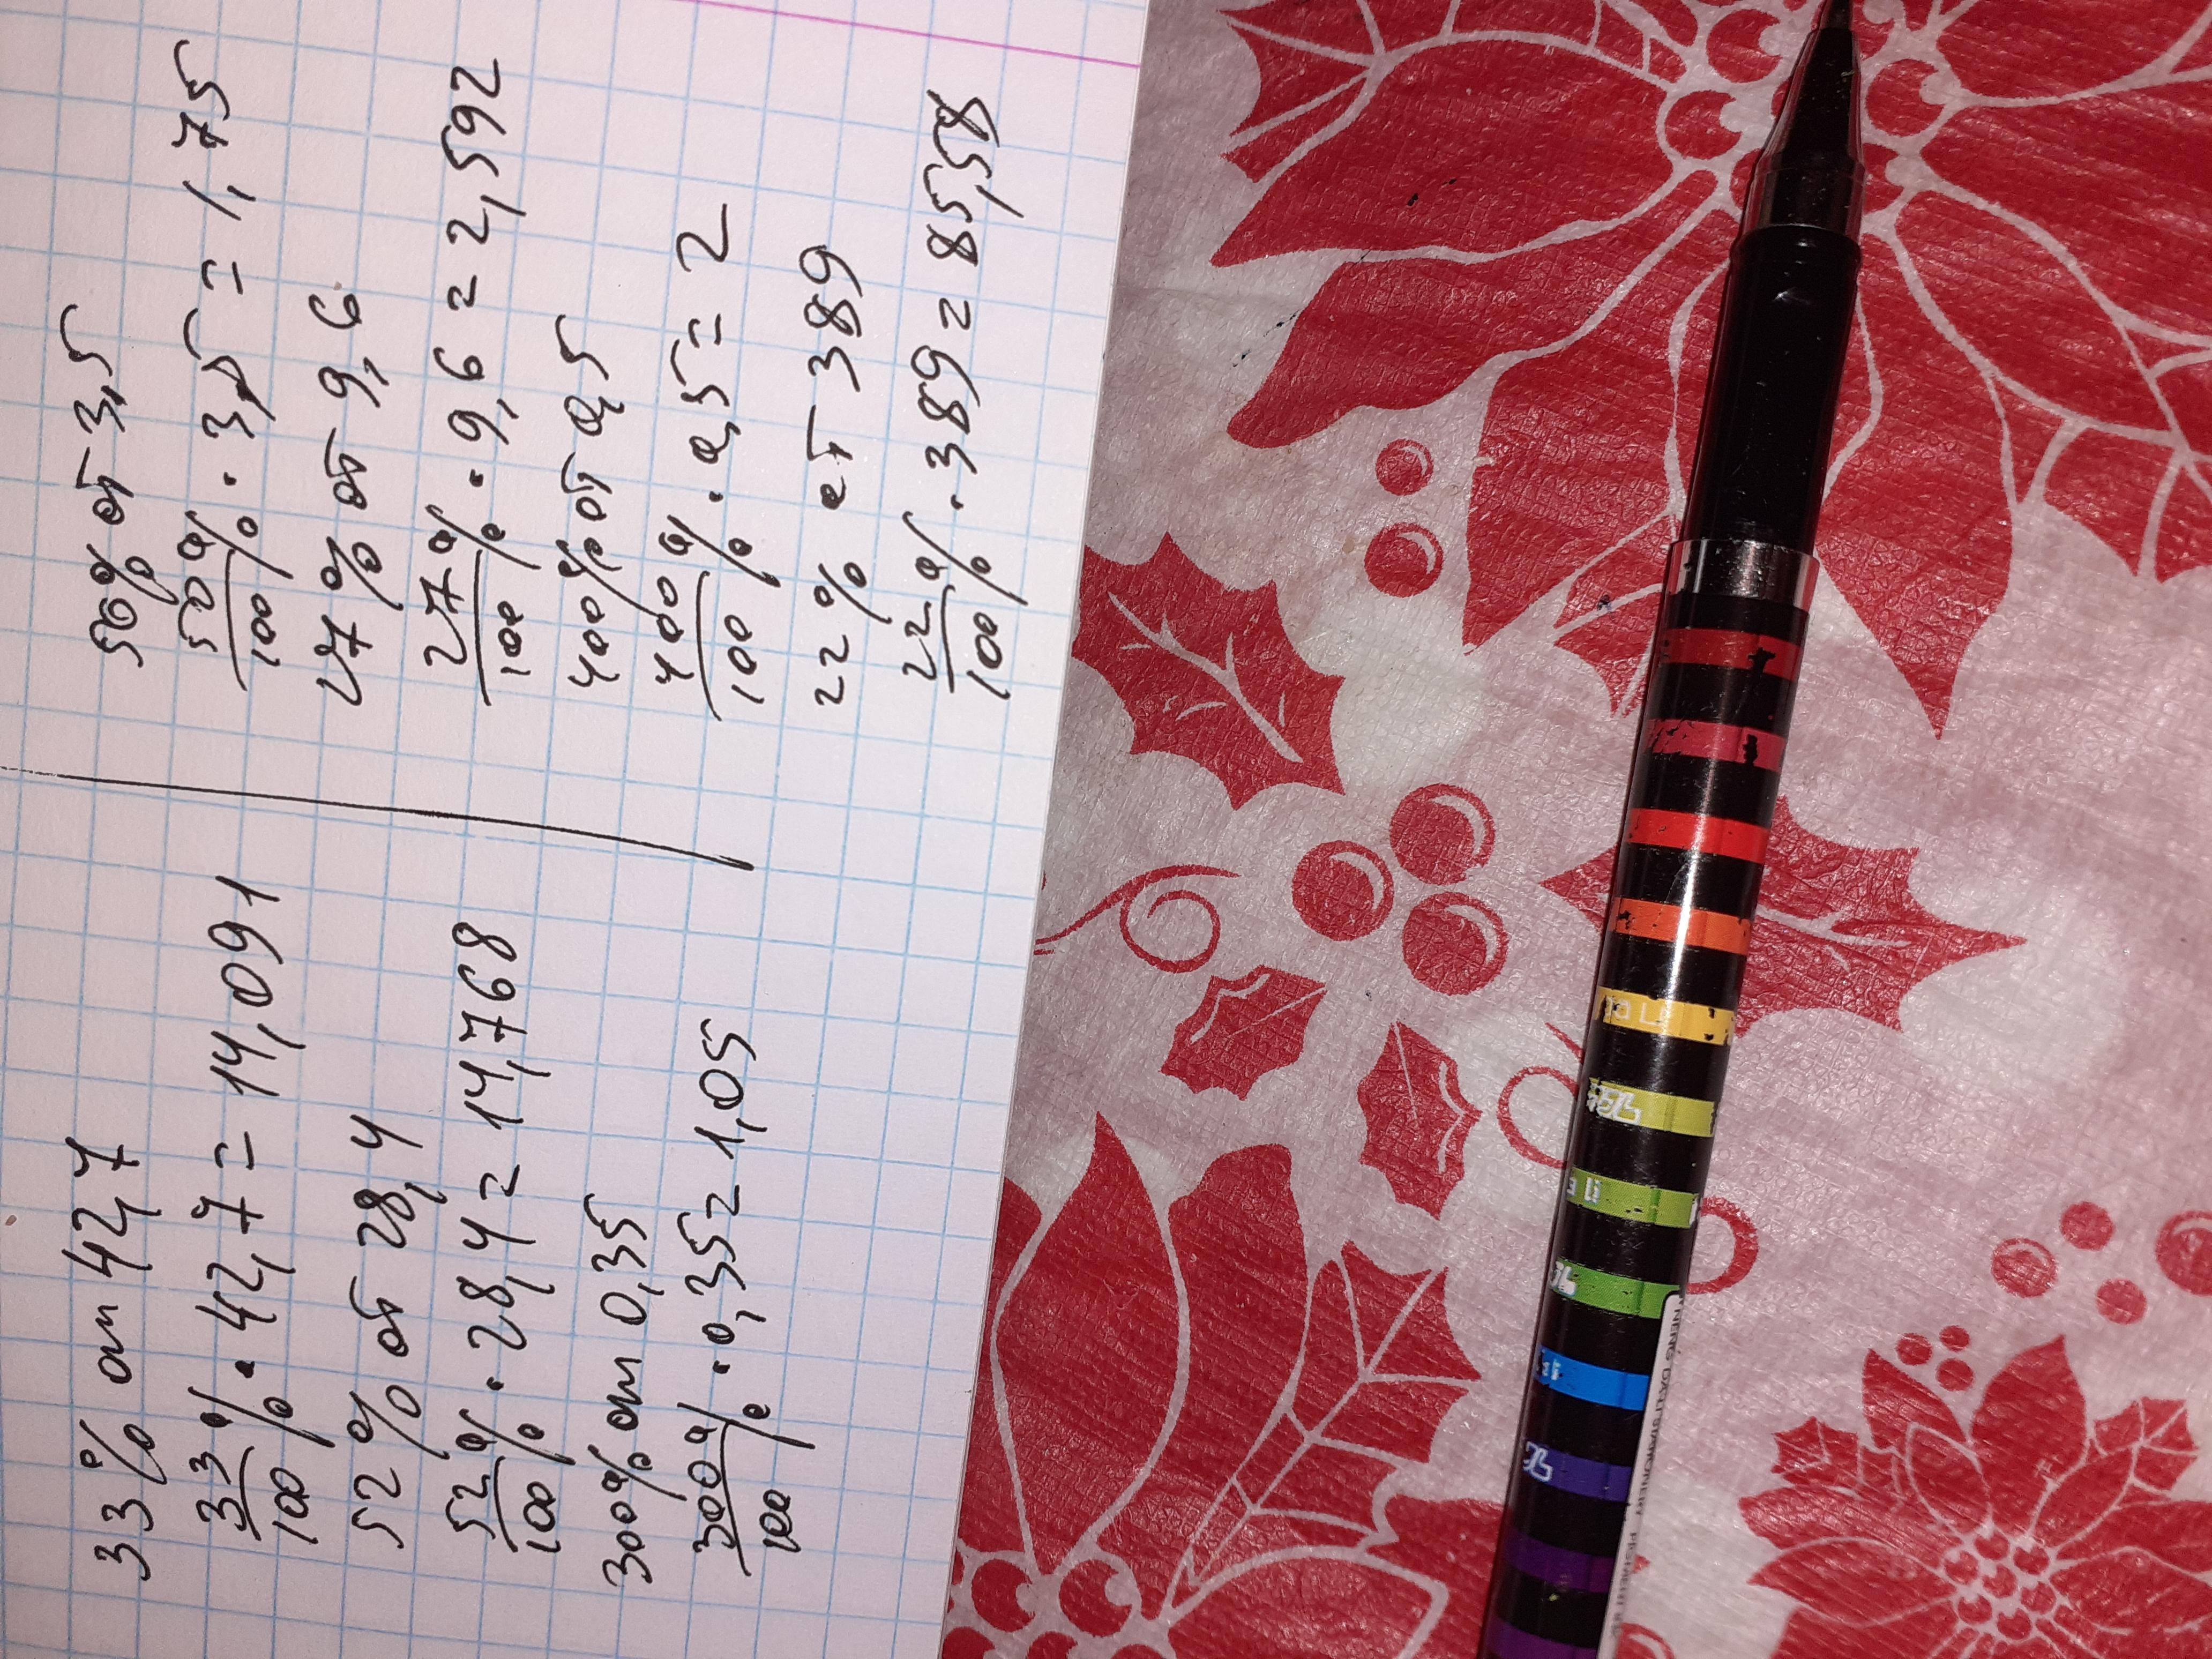 33% от 42,7
33%
100% . 42,7 = 14,091
52% от 28,4
52%
100% . 28,4 = 14,768
300% от 0,35
300%
100% . 0,35 = 1,05
50% от 3,5
50%
100% . 3,5 = 1,75
27% от 9,6
27%
100% . 9,6 = 2,592
400% от 0,5
400%
100% . 0,5 = 2
22% от 389
22%
100% . 389 = 85,58